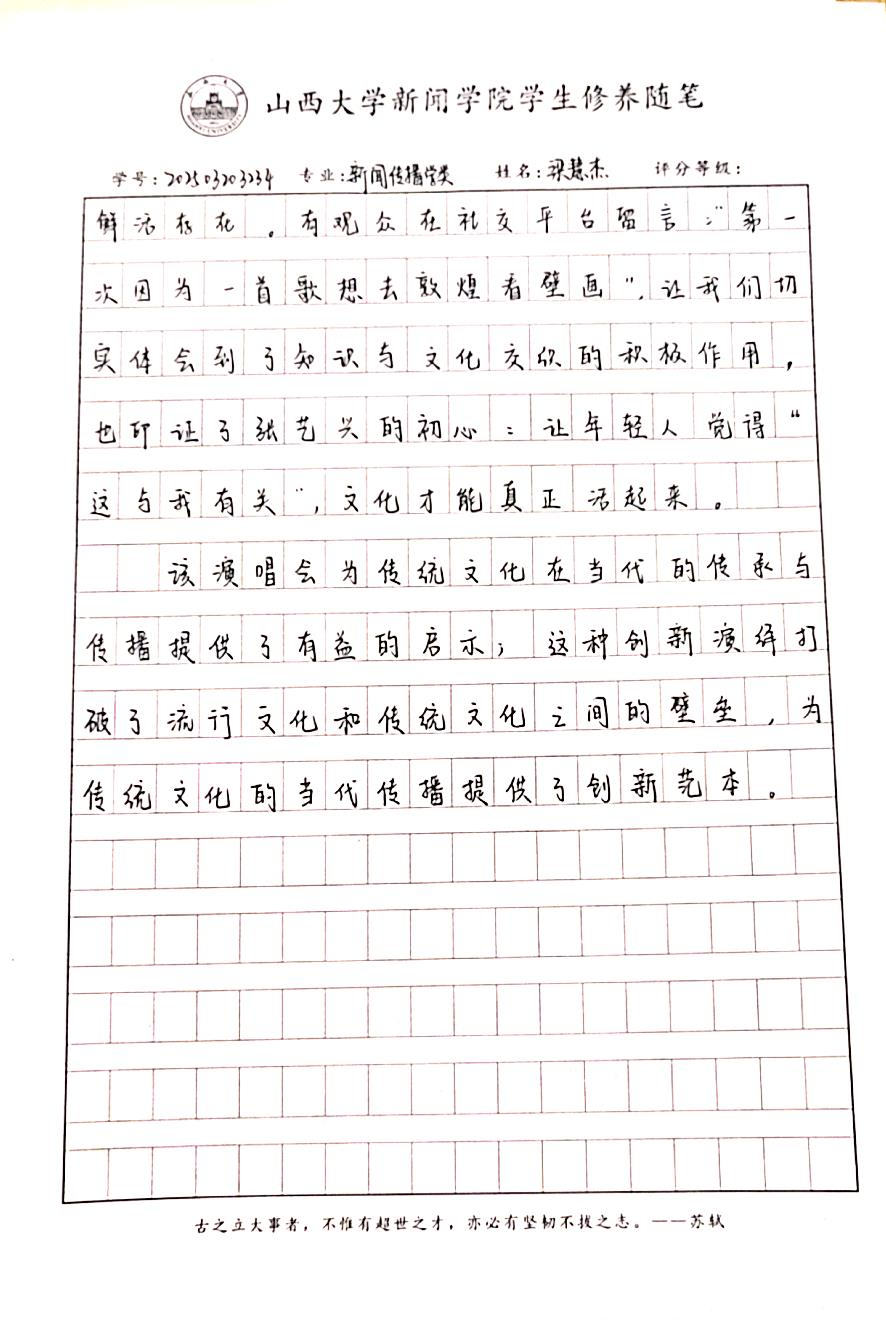 山西大学新闻学院学生修养随笔
学号:202503203234 专业:新闻传播学类 姓名:梁慧杰 评分等级:
鲜活存在。有观众在社交平台留言:“第一
次因为一首歌想去敦煌看壁画”,让我们切
实体会到了知识与文化交织的积极作用,
也印证了张艺兴的初心:让年轻人觉得“
这与我有关”,文化才能真正活起来。
该演唱会为传统文化在当代的传承与
传播提供了有益的启示;这种创新演绎打
破了流行文化和传统文化之间的壁垒,为
传统文化的当代传播提供了创新范本。
古之立大事者,不惟有超世之才,亦必有坚韧不拔之志。——苏轼